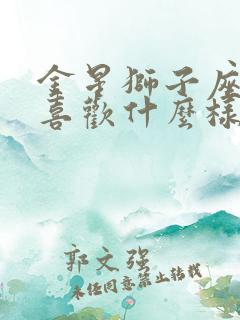 金星獅子座
喜歡什麼樣
郭文强
未经同意禁止转载